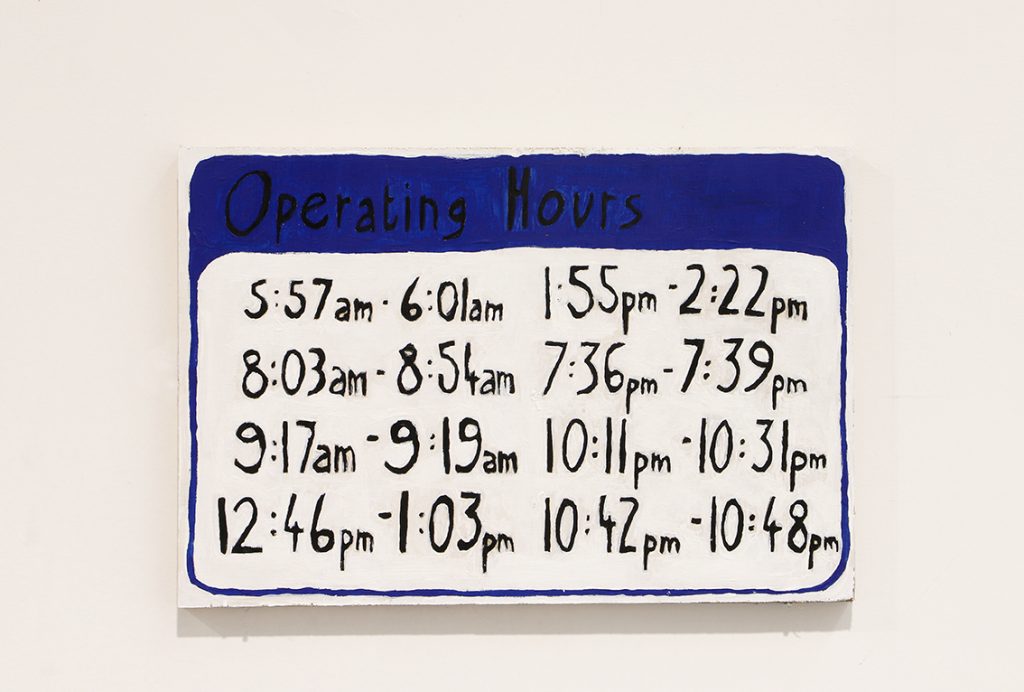 Operating Hours
5:57am - 6:01am
8:03am - 8:54am
9:17am - 9:19am
12:46pm - 1:03pm
1:55pm - 2:22pm
7:36pm - 7:39pm
10:11pm - 10:31pm
10:42pm - 10:48pm